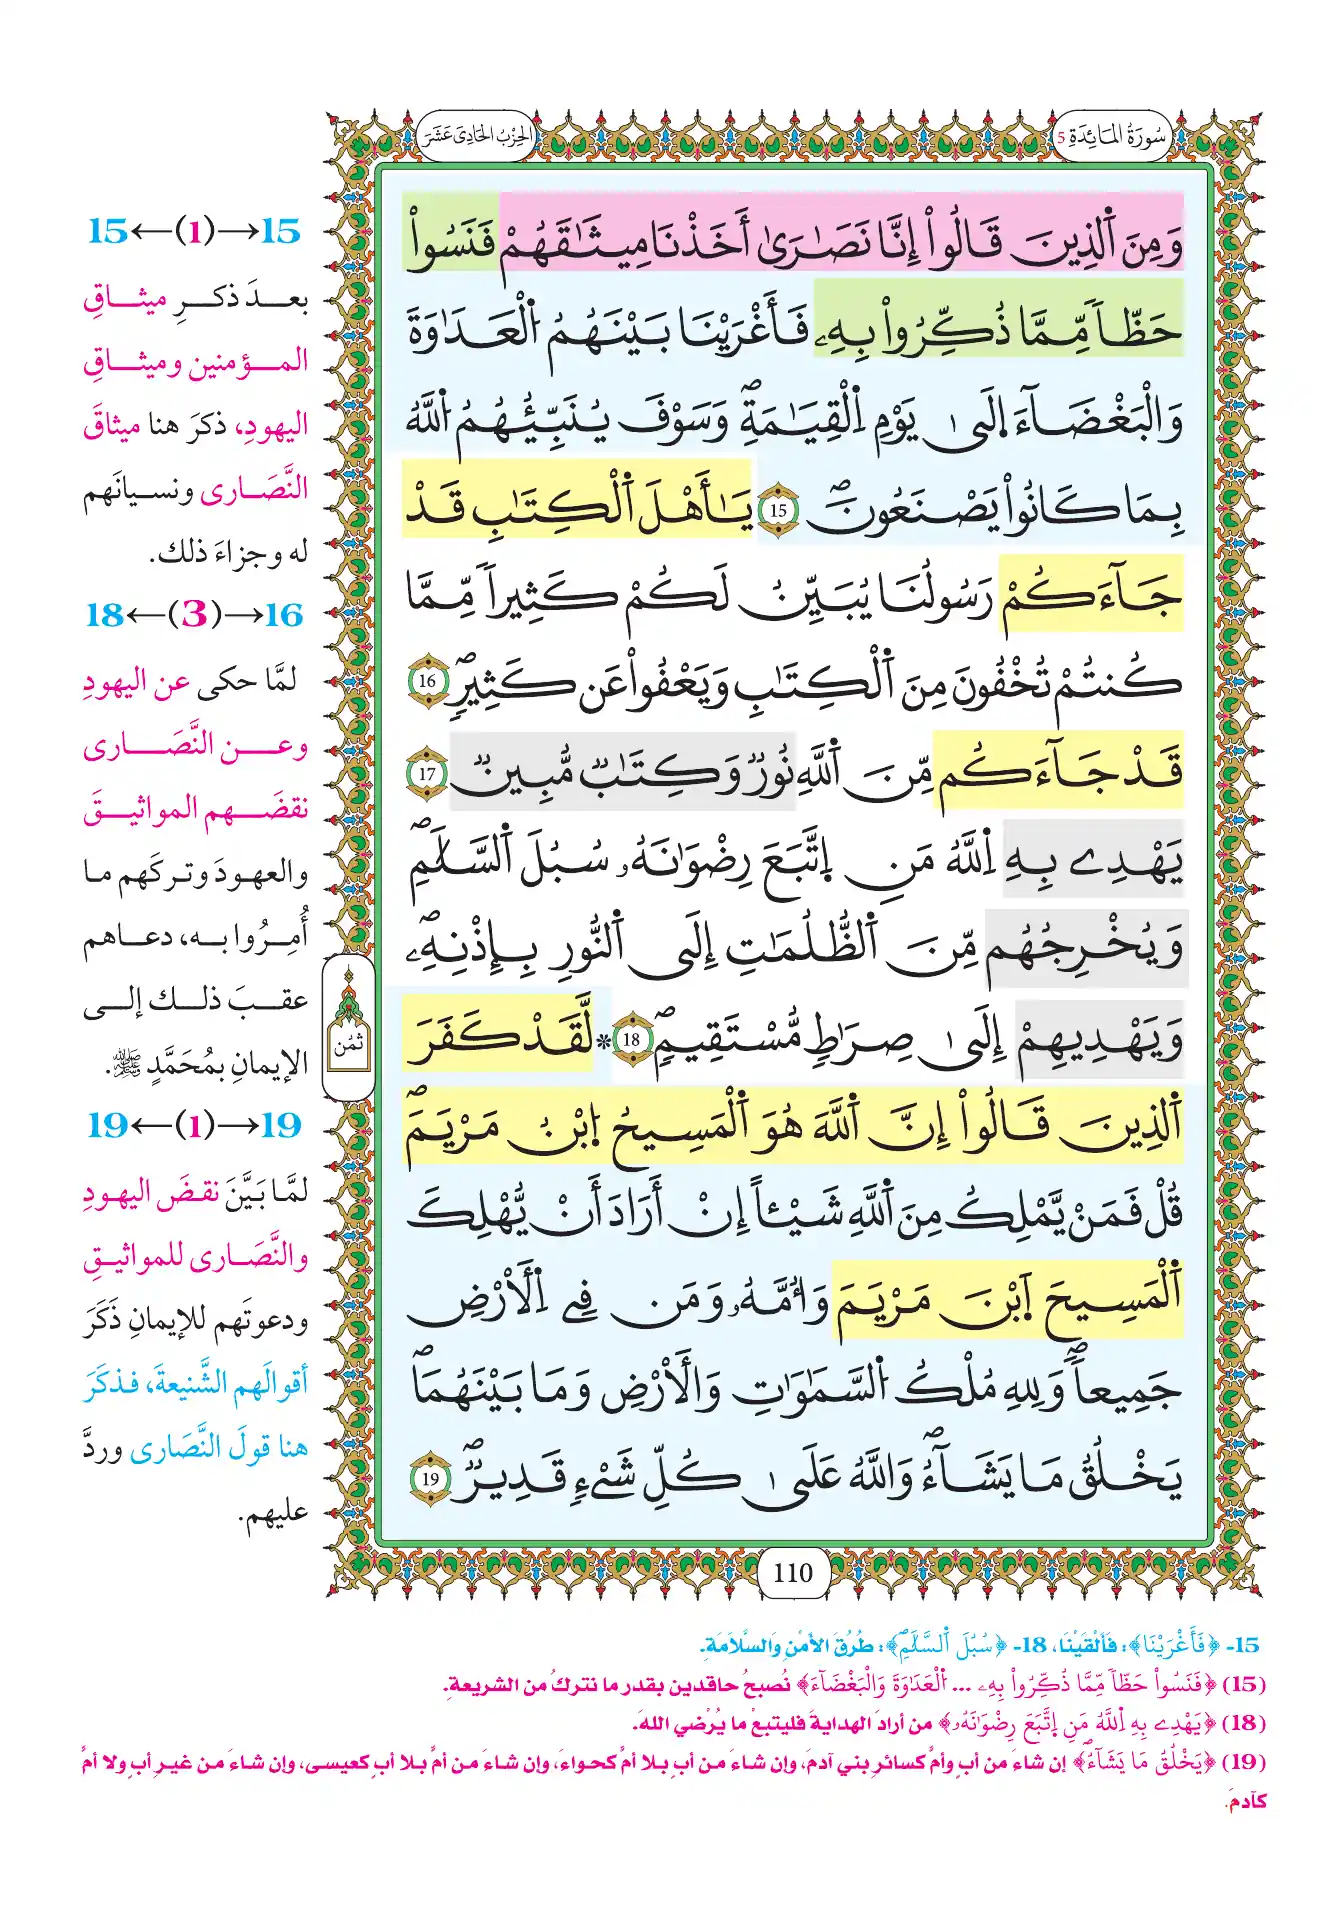 سُورَةُ المَائِدَةِ 5
الحِزْبُ الحَادِي عَشَرَ
وَمِنَ اَ۬لذِينَ قَالُوٓاْ إِنَّا نَصَٰرَىٰٓ أَخَذْنَا مِيثَٰقَهُمْ فَنَسُواْ
حَظّاٗ مِّمَّا ذُكِّرُواْ بِهِۦ فَأَغْرَيْنَا بَيْنَهُمُ اُ۬لْعَدَاوَةَ
وَالْبَغْضَآءَ اِلَىٰ يَوْمِ اِ۬لْقِيَٰمَةِۖ وَسَوْفَ يُنَبِّئُهُمُ اُ۬للَّهُ
بِمَا كَانُواْ يَصْنَعُونَۖ 15 يَٰٓأَهْلَ اَ۬لْكِتَٰبِ قَدْ
جَآءَكُمْ رَسُولُنَا يُبَيِّنُ لَكُمْ كَثِيراٗ مِّمَّا
كُنتُمْ تُخْفُونَ مِنَ اَ۬لْكِتَٰبِ وَيَعْفُواْ عَن كَثِيرٖۖ 16
قَدْ جَآءَكُم مِّنَ اَ۬للَّهِ نُورٞ وَكِتَٰبٞ مُّبِينٞ 17
يَهْدِے بِهِ اِ۬للَّهُ مَنِ اِ۪تَّبَعَ رِضْوَٰنَهُۥ سُبُلَ اَ۬لسَّلَٰمِۖ
وَيُخْرِجُهُم مِّنَ اَ۬لظُّلُمَٰتِ إِلَى اَ۬لنُّورِ بِإِذْنِهِۦ
وَيَهْدِيهِمْ إِلَىٰ صِرَٰطٖ مُّسْتَقِيمٖۖ 18 * لَّقَدْ كَفَرَ
اَ۬لذِينَ قَالُوٓاْ إِنَّ اَ۬للَّهَ هُوَ اَ۬لْمَسِيحُ اُ۪بْنُ مَرْيَمَۖ
قُلْ فَمَنْ يَّمْلِكُ مِنَ اَ۬للَّهِ شَيْـٔاً إِنْ أَرَادَ أَنْ يُّهْلِكَ
اَ۬لْمَسِيحَ اَ۪بْنَ مَرْيَمَ وَأُمَّهُۥ وَمَن فِے اِ۬لَارْضِ
جَمِيعاٗۖ وَلِلهِ مُلْكُ اُ۬لسَّمَٰوَٰتِ وَالَارْضِ وَمَا بَيْنَهُمَاۖ
يَخْلُقُ مَا يَشَآءُۖ وَاللَّهُ عَلَىٰ كُلِّ شَےْءٖ قَدِيرٞۖ 19
110
ثُمُن
15←(1)→15
بعدَ ذكرِ ميثاقِ
المؤمنين وميثاقِ
اليهودِ، ذكرَ هنا ميثاقَ
النَّصَارى ونسيانَهم
له وجزاءَ ذلك.
18←(3)→16
لمَّا حكى عن اليهودِ
وعن النَّصَارى
نقضَهم المواثيقَ
والعهودَ وتركَهم ما
أُمِرُوا به، دعاهم
عقبَ ذلك إلى
الإيمانِ بمُحَمَّدٍ ﷺ.
19←(1)→19
لمَّا بَيَّنَ نقضَ اليهودِ
والنَّصَارى للمواثيقِ
ودعوتَهم للإيمانِ ذَكَرَ
أقوالَهم الشَّنيعةَ، فذكَرَ
هنا قولَ النَّصَارى وردَّ
عليهم.
15- ﴿فَأَغْرَيْنَا﴾: فَأَلْقَيْنَا، 18- ﴿سُبُلَ اَ۬لسَّلَٰمِۖ﴾: طُرُقَ الأَمْنِ وَالسَّلَامَةِ.
(15) ﴿فَنَسُواْ حَظّاٗ مِّمَّا ذُكِّرُواْ بِهِۦ ... اُ۬لْعَدَاوَةَ وَالْبَغْضَآءَ﴾ نُصبحُ حاقدين بقدر ما نتركُ من الشريعةِ.
(18) ﴿يَهْدِے بِهِ اِ۬للَّهُ مَنِ اِ۪تَّبَعَ رِضْوَٰنَهُۥ﴾ من أرادَ الهدايةَ فليتبعْ ما يُرْضي اللهَ.
(19) ﴿يَخْلُقُ مَا يَشَآءُۖ﴾ إن شاءَ من أبٍ وأمٍّ كسائرِ بني آدمَ، وإن شاءَ من أبٍ بلا أمٍّ كحواءَ، وإن شاءَ من أمٍّ بلا أبٍ كعيسى، وإن شاءَ من غيرِ أبٍ ولا أمٍّ
كآدمَ.